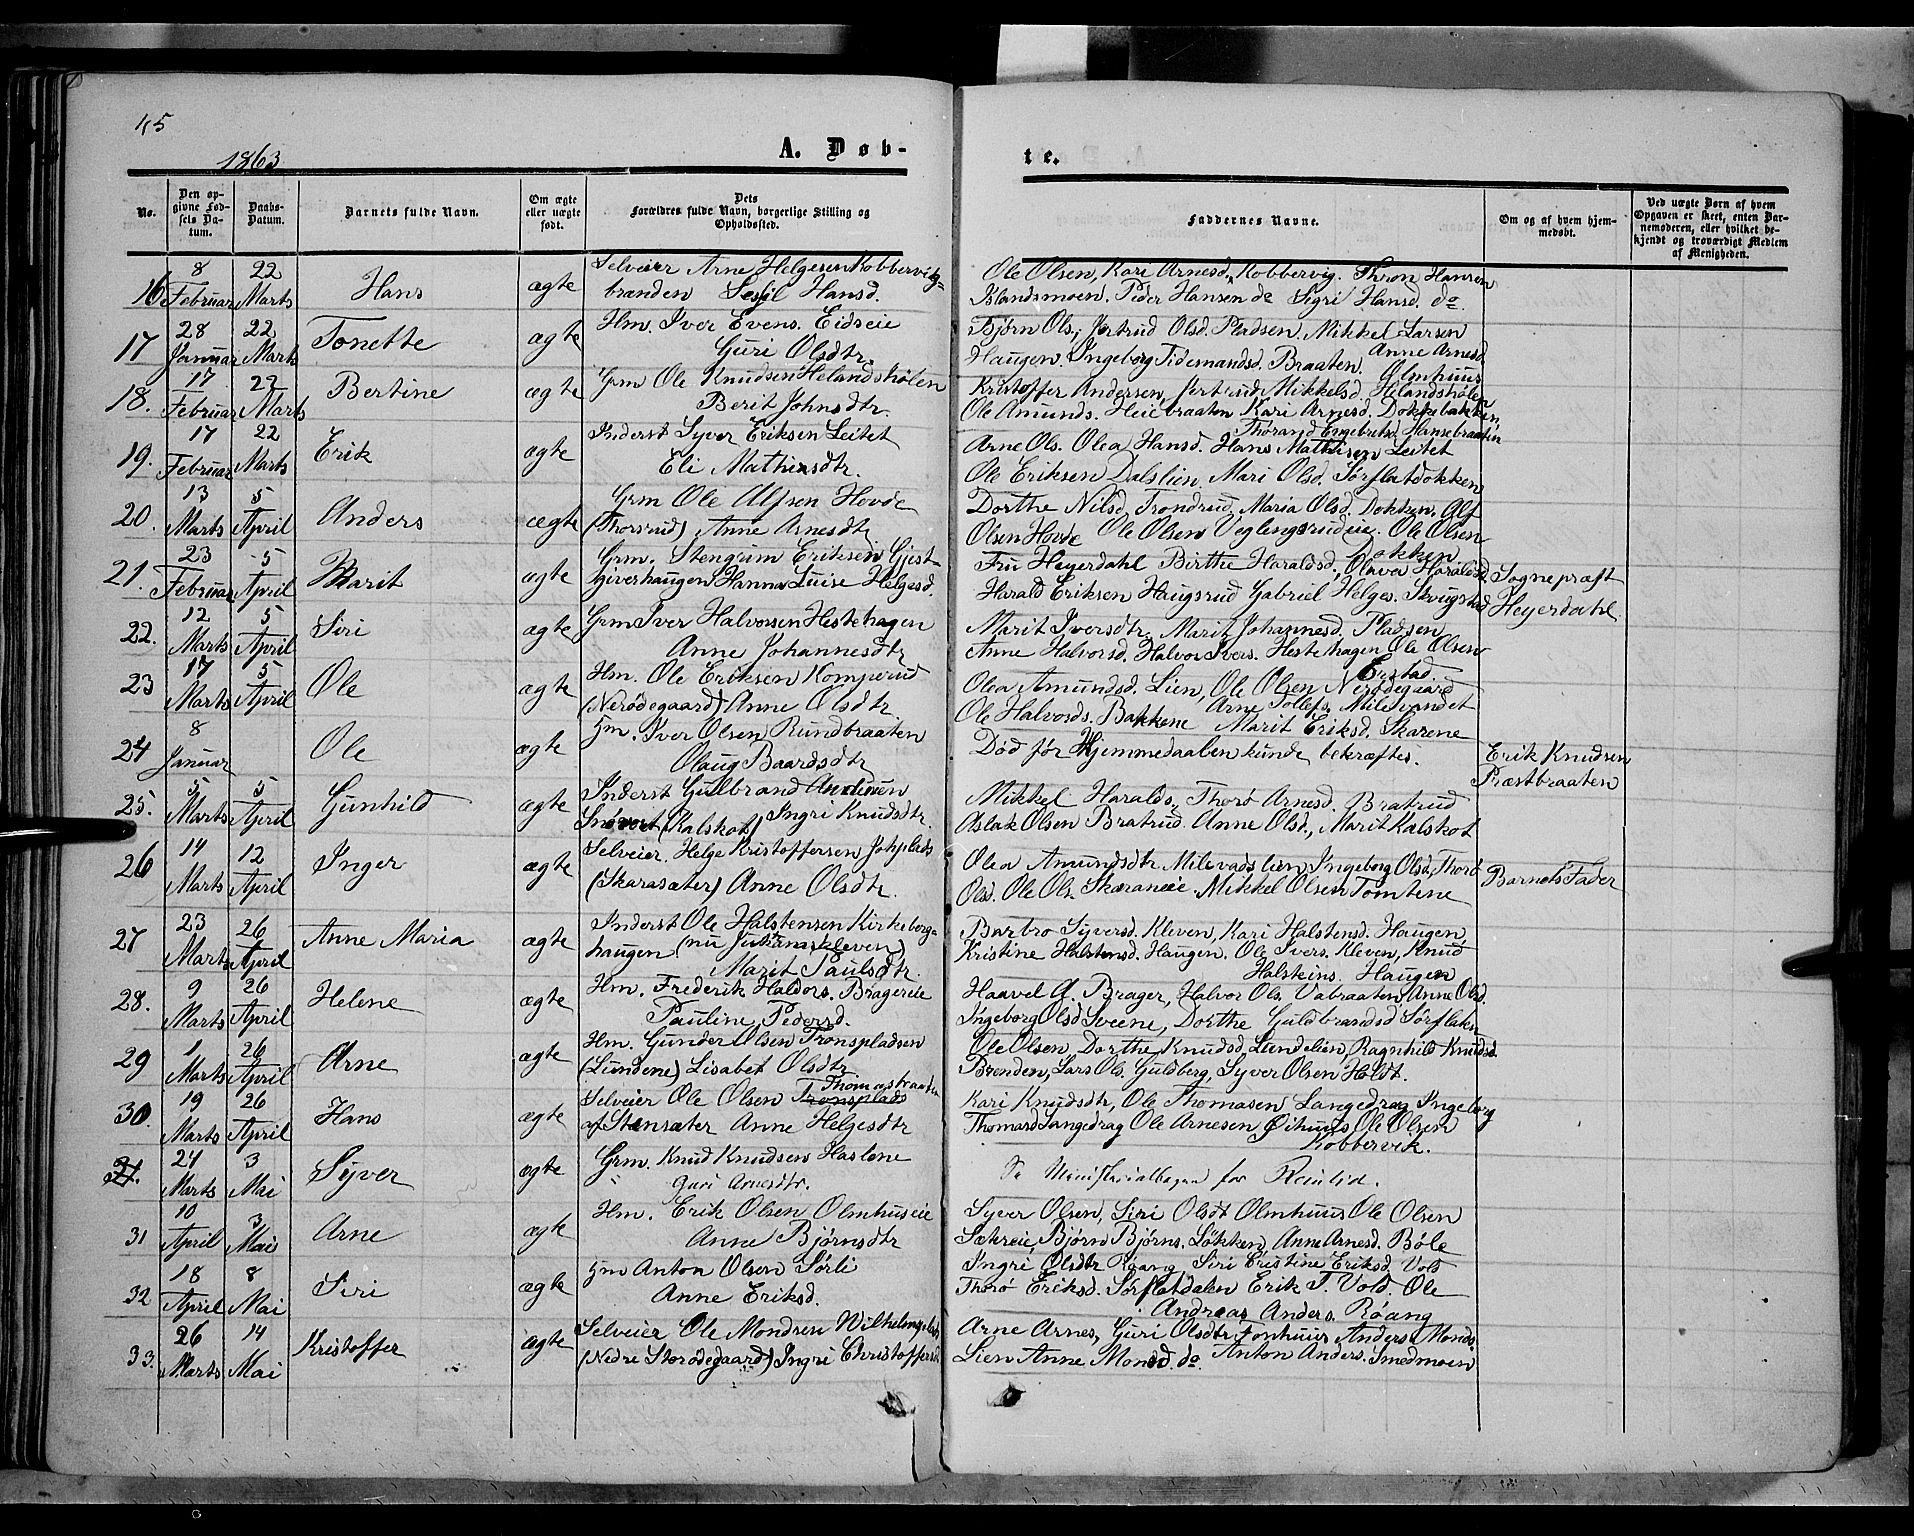 45
1863
A. Døb-
te.
No.
Den op-
givne Fød-
sels Da-
tum.
Daabs-
Datum.
Barnets fulde Navn.
Om ægte
eller uægte
født.
Dets
Forældres fulde Navn, borgerlige Stilling og
Opholdssted.
Faddernes Navne.
Om og af hvem hjem-
medøbt.
Ved uægte Børn af hvem
Opgaven er skeet, enten Bar-
nemoderen, eller hvilket be-
kjendt og troværdigt Medlem
af Menigheden.
16 8 Februar 22 Marts Hans ægte
Selveier Arne Helgesen Kobbervig-
branden Sesil Hansd.
Ole Olsen, Kari Arnesd. Kobbervig. Thron Hansen
Islandsmoen. Peder Hansen do Sigri Hansd. do
17 28 Januar 22 Marts Tonette ægte
Hm. Iver Evens. Eidseie
Guri Olsdtr.
Bjørn Ols., Jertrud Olsd. Pladsen. Mikkel Larsen
Haugen. Ingeborg Tidemandsd. Braaten. Anne Arnesd
Olmhuus
18. 17 Februar 22 Marts Bertine ægte
Grm Ole Knudsen Helandshølen
Berit Johnsdtr.
Kristoffer Andersen, Jertrud Mikkelsd. Helandshølen
Ole Amunds. Heiebraaten Kari Arnesd. Dokkebakken
Thorand Engebretsd. Hansebraatin
19. 17 Februar 22 Marts Erik ægte
Inderst Syver Eriksen Leitet
Eli Mathiasdtr.
Arne Ols. Olea Hansd. Hans Mathisen Leitet
Ole Eriksen Dalslien. Mari Olsd. Sørflatdokken
20. 13 Marts 5 April Anders ægte
Grm Ole Alfsen Hovde
(Thorsrud) Anne Arnesdtr
Dorthe Nilsd. Trondrud, Maria Olsd. Dokken. Alf
Olsen Hovde Ole Olsen Veglengsrudeie. Ole Olsen
Dokken
21. 23 Februar 5 April Marit ægte
Grm. Stengrim Eriksen Gjest-
giverhaugen Hanna Luise Helgesd.
Fru Heyerdahl Birthe Haraldsd., Olava Haraldsd.
Harald Eriksen Haugsrud Gabriel Helges. Skvugstad
Sognepræst
Heyerdahl
22. 12 Marts 5 April Siri ægte
Grm Iver Halvorsen Hestehagen
Anne Johannesdtr
Marit Iversdtr. Marit Johannesd. Pladsen
Anne Halvorsd. Halvor Ivers. Hestehagen Ole Olsen
23 17 Marts 5 April Ole ægte
Hm. Ole Eriksen Komperud
(Nerødegaard) Anne Olsdtr
Olea Amundsd. Lien, Ole Olsen Nerødegaard
Ole Halvords. Bakkene Arne Tollefs. Milevandet
Marit Eriksd. Skarene
24 8 Januar Ole ægte
Hm. Iver Olsen Rundbraaten
Olaug Baardsdtr
Død før Hjemmedaaben kunde bekræftes.
Erik Knudsen
Præstbraaten
25. 5 Marts 5 April Gunhild ægte
Inderst Gulbrand
(Kalskot) Ingri Knudsdtr.
Mikkel Haralds., Thorø Arnesd. Bratrud
Aslak Olsen Bratrud Anne Olsd., Marit Kalskot
26 14 Marts 12 April Inger ægte
Selveier. Helge Kristoffersen Johplads
(Skarasæter) Anne Olsdtr.
Olea Amundsdtr. Milevadslien, Ingeborg Olsd, Thorø
Olsd. Ole Ols. Skaraneie. Mikkel Olsen Tomtene
Barnets Fader
27 23 Marts 26 April Anne Maria ægte
Inderst Ole Halstensen Kirkeborg-
haugen (nu Juhanskleven)
Marit Paulsdtr.
Barbro Syversd. Kleven, Kari Halstensd. Haugen,
Kristine Halstensd. Haugen. Ole Ivers. Kleven, Knud
Halsteins. Haugen
28. 9 Marts 26 April Helene ægte
Hm. Frederik Haldors. Bragereie
Pauline Pedersd.
Haavel A. Brager, Halvor Ols. Vabraaten, Anne Olsd.
Ingeborg Olsd Sveene, Dorthe Guldbrandsd Sørflaten
29 1 Marts 26 April Arne ægte
Hm. Gunder Olsen Tronspladsen
(Lundene) Lisabet Olsdtr
Ole Olsen, Dorthe Knudsd. Lundelien, Ragnhild Knudsd.
Brenden, Lars Ols. Guldberg, Syver Olsen Holdt.
30. 19 Marts 26 April Hans ægte
Thomasbraaten
Selveier Ole Olsen Tronsplads
af Stensæter Anne Helgesdtr
Kari Knudsdtr, Ole Thomasen Langedrag Ingeborg
Thomasd Langedrag Ole Arnesen Øihuus Ole Olsen
Kobbervik.
31. 24 Marts 3 Mai Syver ægte
Grm. Knud Knudsen Haslene
Guri Arnesdtr.
Se Ministerialbogen for Reinlid.
31 10 April 3 Mai Arne ægte
Hm. Erik Olsen Olmhuseie
Anne Bjørnsdtr
Syver Olsen, Siri Olsdt Olmhuus Ole Olsen
Bjørn Bjørns. Løkken, Anne Arnesd. Bøle
32 18 April 8 Mai Siri ægte
Hm Anton Olsen Sørli
Anne Eriksd.
Ingri Olsdtr Roang Siri Cristine Eriksd. Vold
Thorø Eriksd. Sørflatdalen Erik T. Vold. Ole
Andreas Anders. Røang
33. 26 Marts 14 Mai Kristoffer ægte
Selveier Ole Mondsen Wilhelmsplads
(Nedre Storødegaard) Ingri Christoffersd
Arne Arnes, Guri Olsdtr Fonhuus Anders Monds.
Lien Anne Monsd. do Anton Anders. Smedmoen